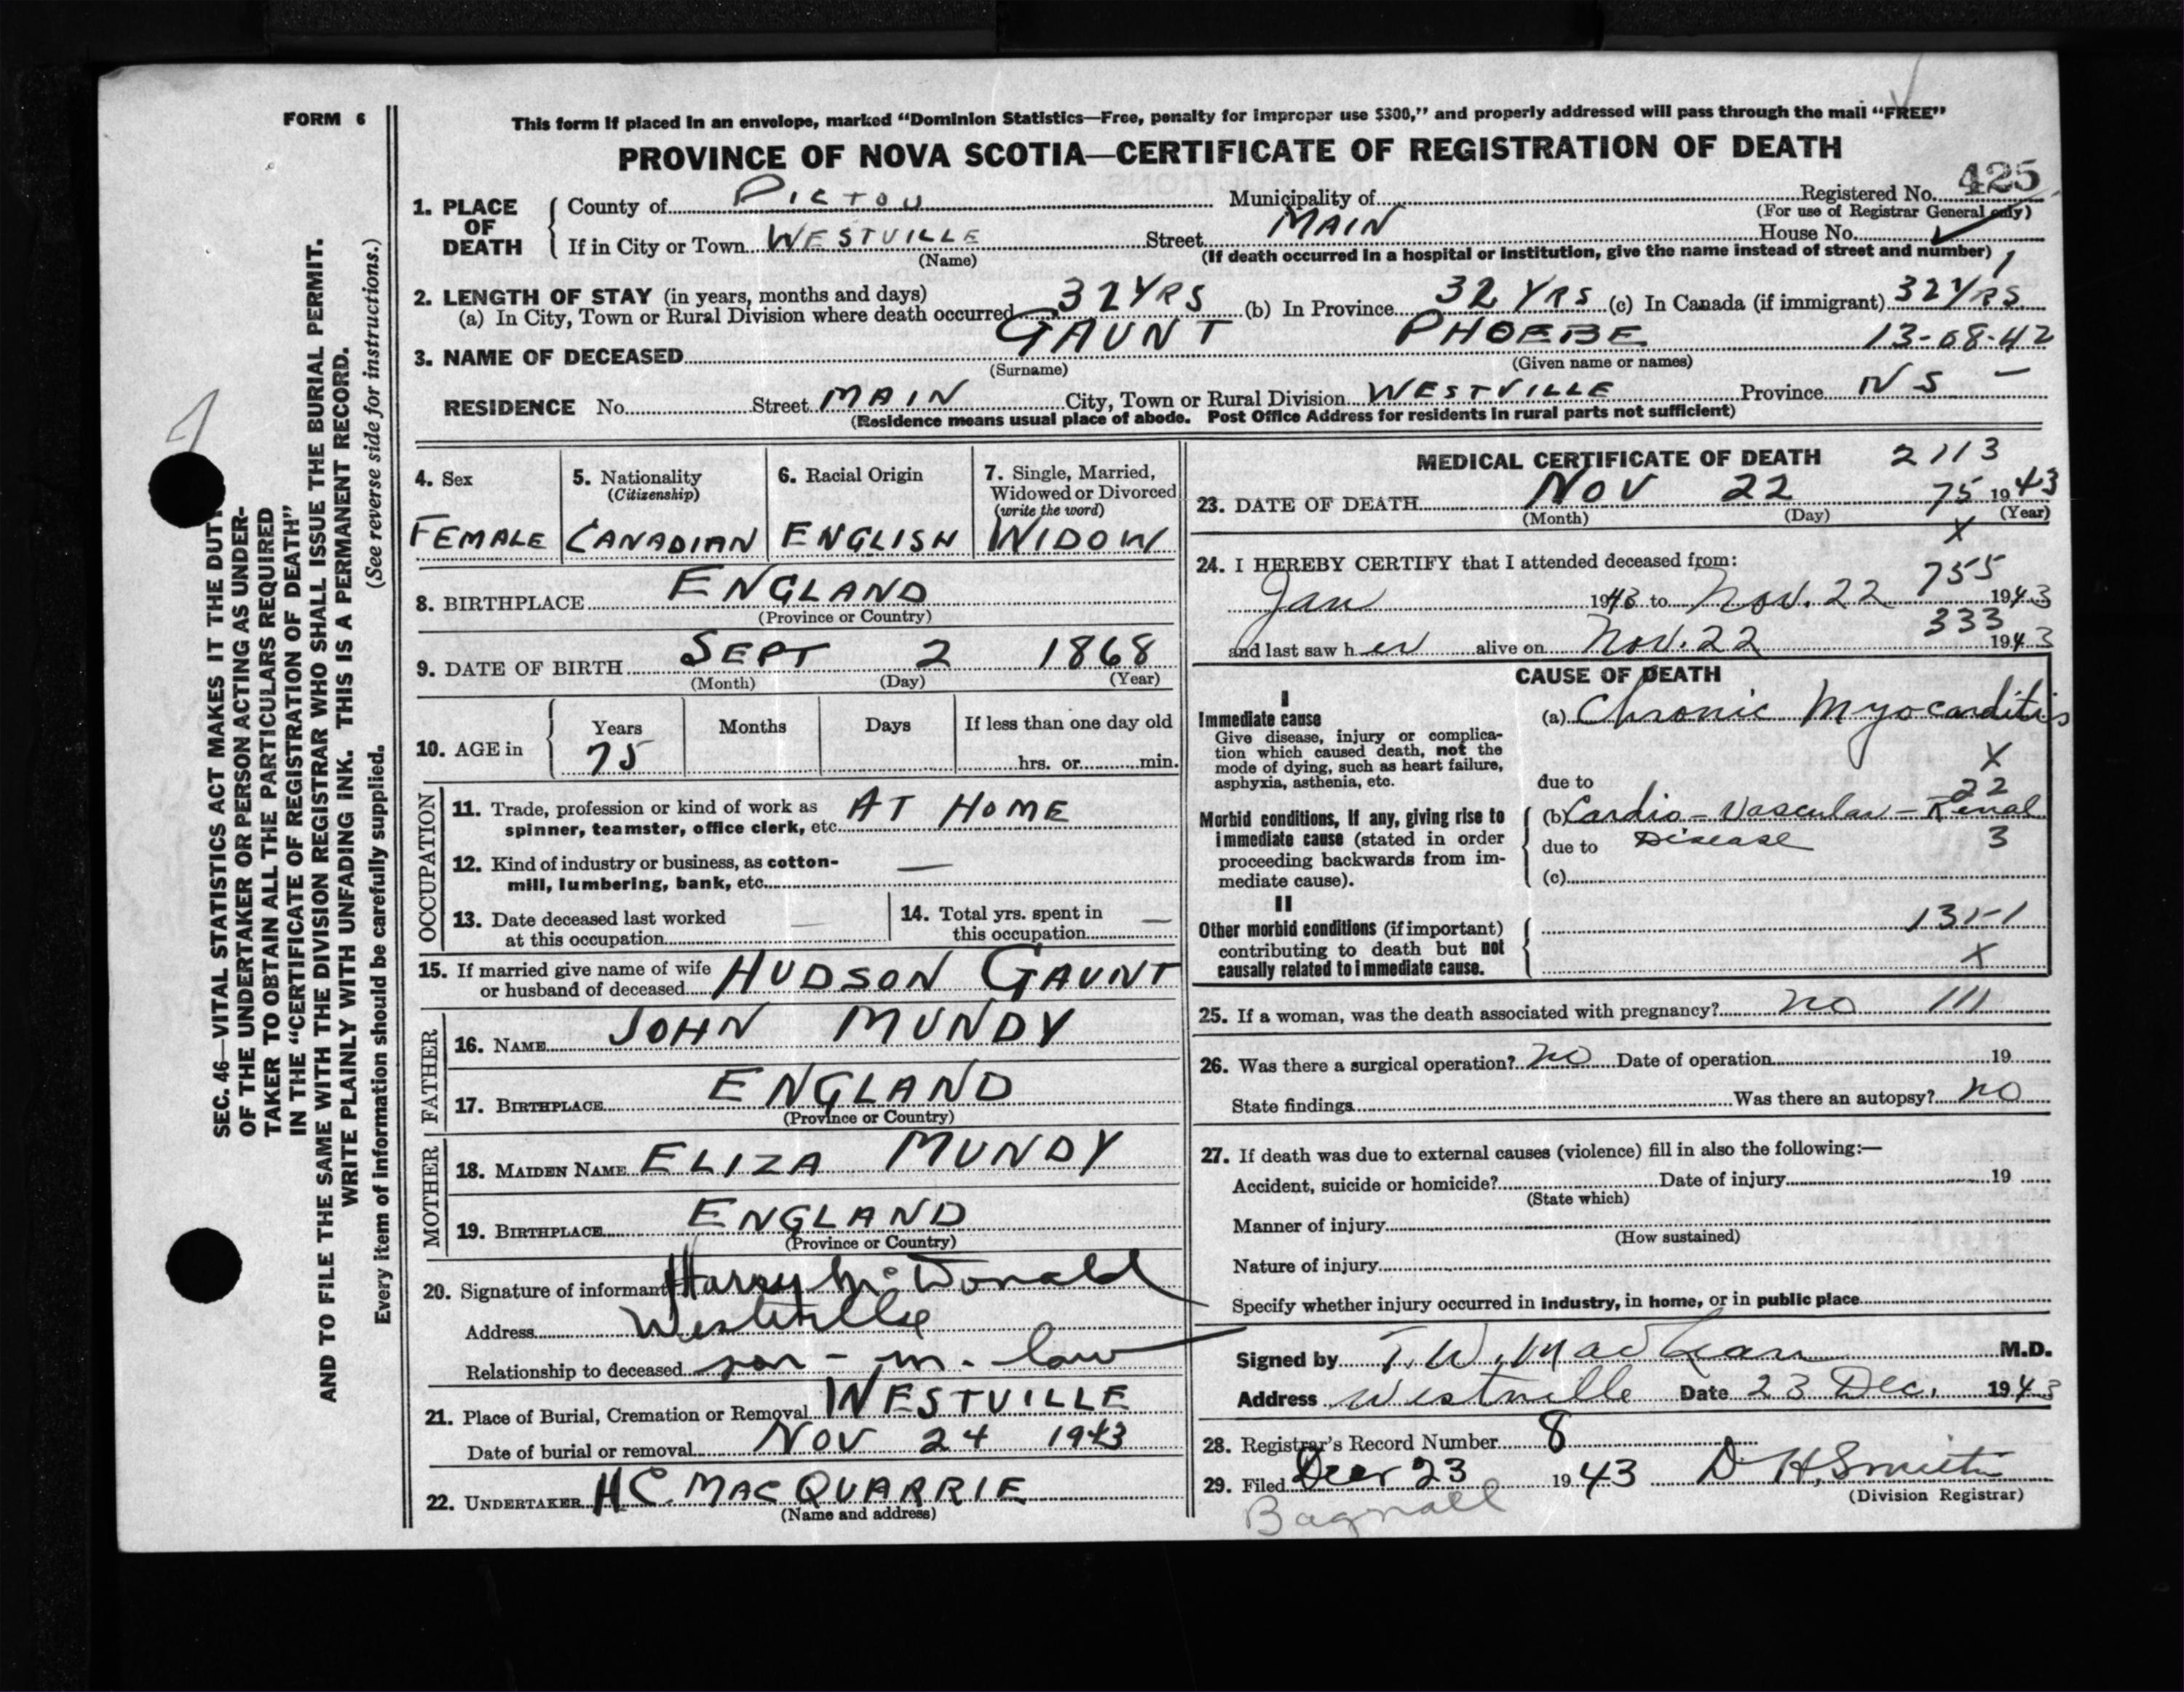 FORM 6
This form if placed in an envelope, marked “Dominion Statistics—Free, penalty for improper use $300,” and properly addressed will pass through the mail “FREE”
PROVINCE OF NOVA SCOTIA—CERTIFICATE OF REGISTRATION OF DEATH
425
1. PLACE OF DEATH
County of PICTOU Municipality of Registered No.
(For use of Registrar General only)
If in City or Town WESTVILLE Street MAIN House No.
(Name) (If death occurred in a hospital or institution, give the name instead of street and number)
2. LENGTH OF STAY (in years, months and days)
(a) In City, Town or Rural Division where death occurred 32 YRS (b) In Province 32 YRS (c) In Canada (if immigrant) 32 YRS
3. NAME OF DECEASED GAUNT PHOEBE 13-08-42
(Surname) (Given name or names)
RESIDENCE No. Street MAIN City, Town or Rural Division WESTVILLE Province NS —
(Residence means usual place of abode. Post Office Address for residents in rural parts not sufficient)
SEC. 46—VITAL STATISTICS ACT MAKES IT THE DUTY
OF THE UNDERTAKER OR PERSON ACTING AS UNDER-
TAKER TO OBTAIN ALL THE PARTICULARS REQUIRED
IN THE “CERTIFICATE OF REGISTRATION OF DEATH”
AND TO FILE THE SAME WITH THE DIVISION REGISTRAR WHO SHALL ISSUE THE BURIAL PERMIT.
WRITE PLAINLY WITH UNFADING INK. THIS IS A PERMANENT RECORD.
Every item of information should be carefully supplied. (See reverse side for instructions.)
4. Sex
FEMALE
5. Nationality
(Citizenship)
CANADIAN
6. Racial Origin
ENGLISH
7. Single, Married,
Widowed or Divorced
(write the word)
WIDOW
8. BIRTHPLACE ENGLAND
(Province or Country)
9. DATE OF BIRTH SEPT 2 1868
(Month) (Day) (Year)
10. AGE in
Years Months Days If less than one day old
75 hrs. or min.
OCCUPATION
11. Trade, profession or kind of work as
spinner, teamster, office clerk, etc. AT HOME
12. Kind of industry or business, as cotton-
mill, lumbering, bank, etc. —
13. Date deceased last worked
at this occupation —
14. Total yrs. spent in
this occupation —
15. If married give name of wife
or husband of deceased HUDSON GAUNT
FATHER
16. NAME JOHN MUNDY
17. BIRTHPLACE ENGLAND
(Province or Country)
MOTHER
18. MAIDEN NAME ELIZA MUNDY
19. BIRTHPLACE ENGLAND
(Province or Country)
20. Signature of informant Harry McDonald
Address Westville
Relationship to deceased son-in-law
21. Place of Burial, Cremation or Removal WESTVILLE
Date of burial or removal NOV 24 1943
22. UNDERTAKER H C. MACQUARRIE
(Name and address)
MEDICAL CERTIFICATE OF DEATH 2113
23. DATE OF DEATH NOV 22 75 1943
(Month) (Day) (Year)
X
24. I HEREBY CERTIFY that I attended deceased from:
755
Jan 1943 to Nov. 22 1943
333
and last saw her alive on Nov. 22 1943
CAUSE OF DEATH
I
Immediate cause
Give disease, injury or complica-
tion which caused death, not the
mode of dying, such as heart failure,
asphyxia, asthenia, etc.
(a) Chronic Myocarditis
X
due to
22
Morbid conditions, if any, giving rise to
immediate cause (stated in order
proceeding backwards from im-
mediate cause).
(b) Cardio-Vascular-Renal
due to Disease 3
(c)
II
Other morbid conditions (if important)
contributing to death but not
causally related to immediate cause.
131-1
X
25. If a woman, was the death associated with pregnancy? no 111
26. Was there a surgical operation? no Date of operation 19
State findings Was there an autopsy? no
27. If death was due to external causes (violence) fill in also the following:—
Accident, suicide or homicide? Date of injury 19
(State which)
Manner of injury
(How sustained)
Nature of injury
Specify whether injury occurred in industry, in home, or in public place
Signed by T. W. MacLean M.D.
Address Westville Date 23 Dec. 1943
28. Registrar's Record Number 8
29. Filed Decr 23 1943 D. H. Smith
(Division Registrar)
Bagnall